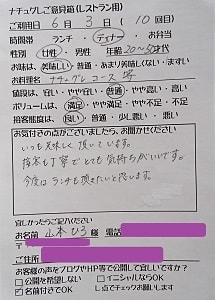 ナチュグレご意見箱(レストラン用)
ご利用日 6月3日(10回目)
時間帯 ランチ・ディナー・お弁当
性別 女性・男性 年齢20〜50才代
美味しい・普通・あまり美味しくない・まずい
お料理名 ナチュグレコース 等
値段は、安い・やや安い・普通・やや高い・高い
ボリュームは、満足・やや満足・やや不足・不足
接客態度は、良い・普通・少し悪い・悪い
お気付きの点がございましたら、お聞かせください
いつも美味しく頂いています。
接客も丁寧でとても気持ちがいいです。
今度はランチも頂きたいと思います。
宜しかったらご記入ください
お名前 山本ひろ 様 電話
ご住所
お客様の声をブログやHP等で公開して宜しいですか?
□公開を希望しない □イニシャルならOK
☑名前付きでOK レ点でチェックお願いします